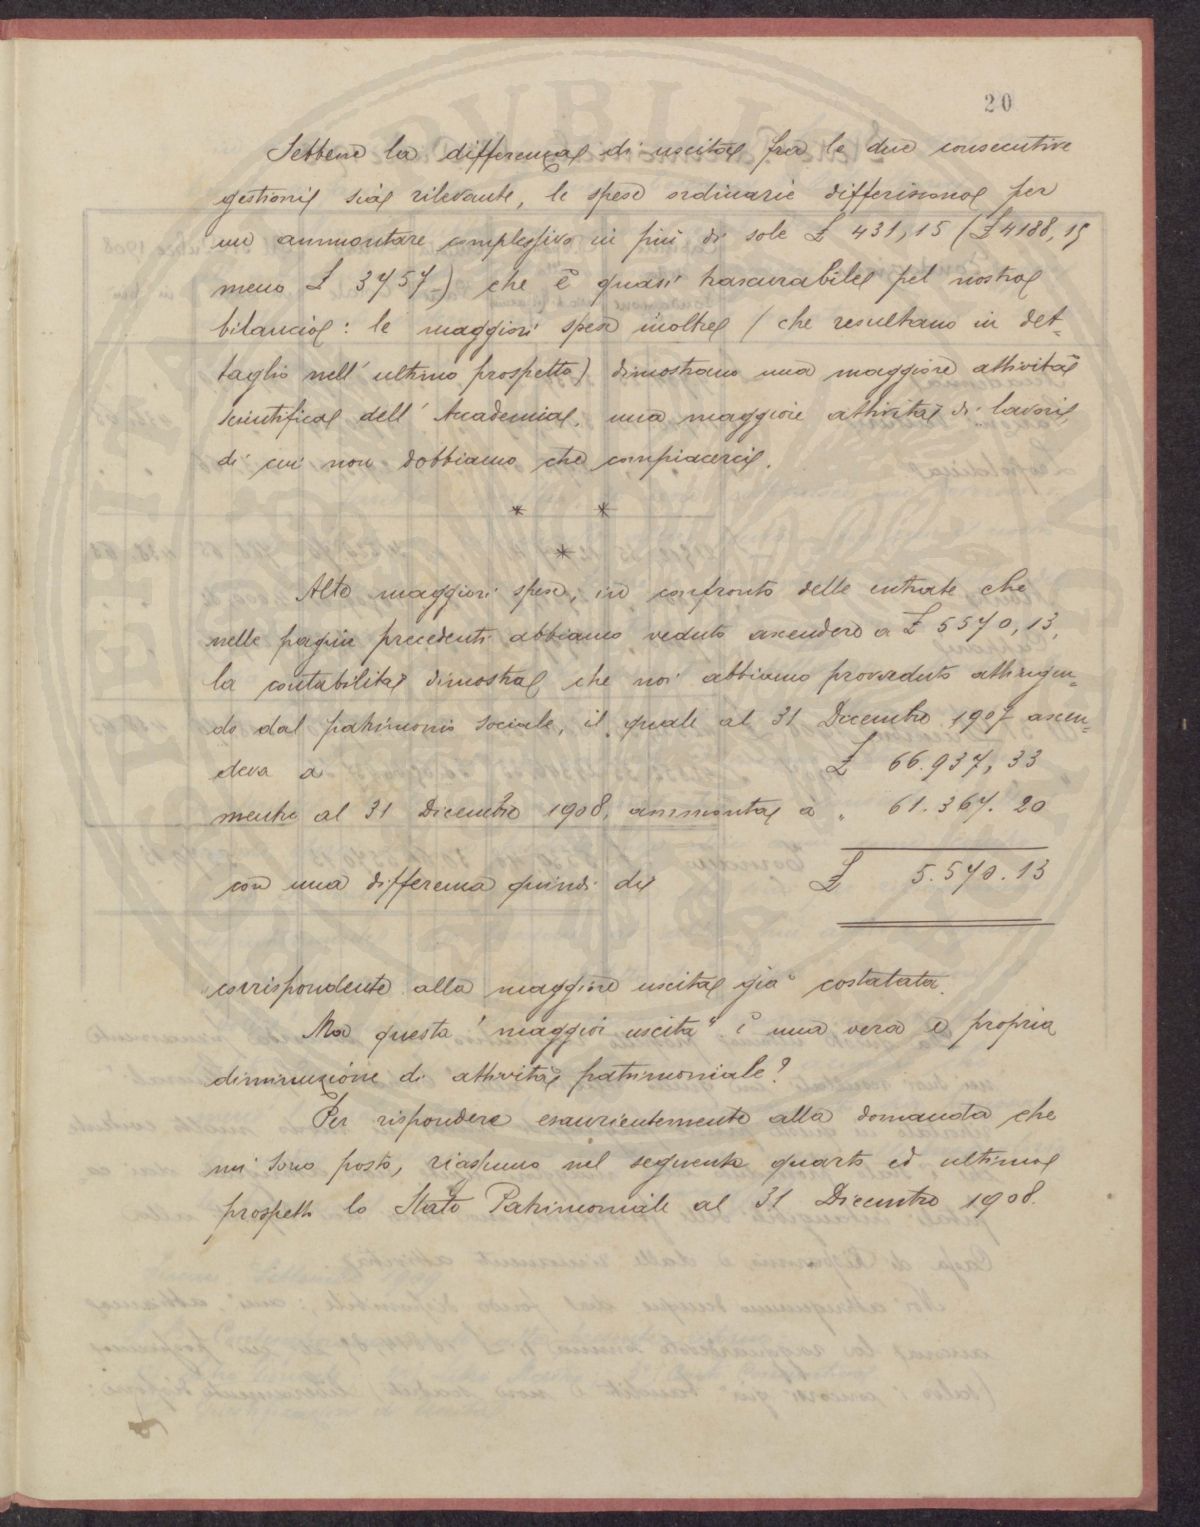 20
Sebbene la differenza di uscita fra le due consecutive
gestioni sia rilevante, le spese ordinarie differiscono per
un ammontare complessivo in più di sole £ 431,15 (£ 4188,15
meno £ 3757) che è quasi trascurabile pel nostro
bilancio: le maggiori spese inoltre (che resultano in det-
taglio nell' ultimo prospetto) dimostrano una maggiore attività
scientifica dell' Accademia, una maggiore attività di lavori,
di cui non dobbiamo che compiacerci.
* *
*
Alle maggiori spese, in confronto delle entrate che
nelle pagine precedenti abbiamo veduto ascendere a £ 5570,13,
la contabilità dimostra che noi abbiamo provveduto attingen-
do dal patrimonio sociale, il quale al 31 Dicembre 1907 ascen-
deva a £ 66.937,33
mentre al 31 Dicembre 1908, ammonta a " 61.367.20
con una differenza quindi di £ 5.570.13
corrispondente alla maggiore uscita già costatata.
Ma questa "maggior uscita" è una vera e propria
diminuzione di attività patrimoniale?
Per rispondere esaurientemente alla domanda che
mi sono posto, riassumo nel seguente quarto ed ultimo
prospetto lo Stato Patrimoniale al 31 Dicembre 1908.